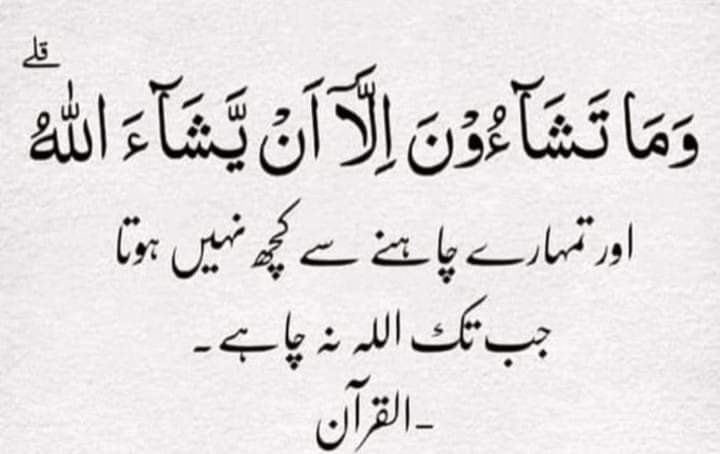 وَمَا تَشَآءُوْنَ اِلَّآ اَنْ يَّشَآءَ اللّٰهُ ۗ
اور تمہارے چاہنے سے کچھ نہیں ہوتا
جب تک اللہ نہ چاہے ۔
-القرآن